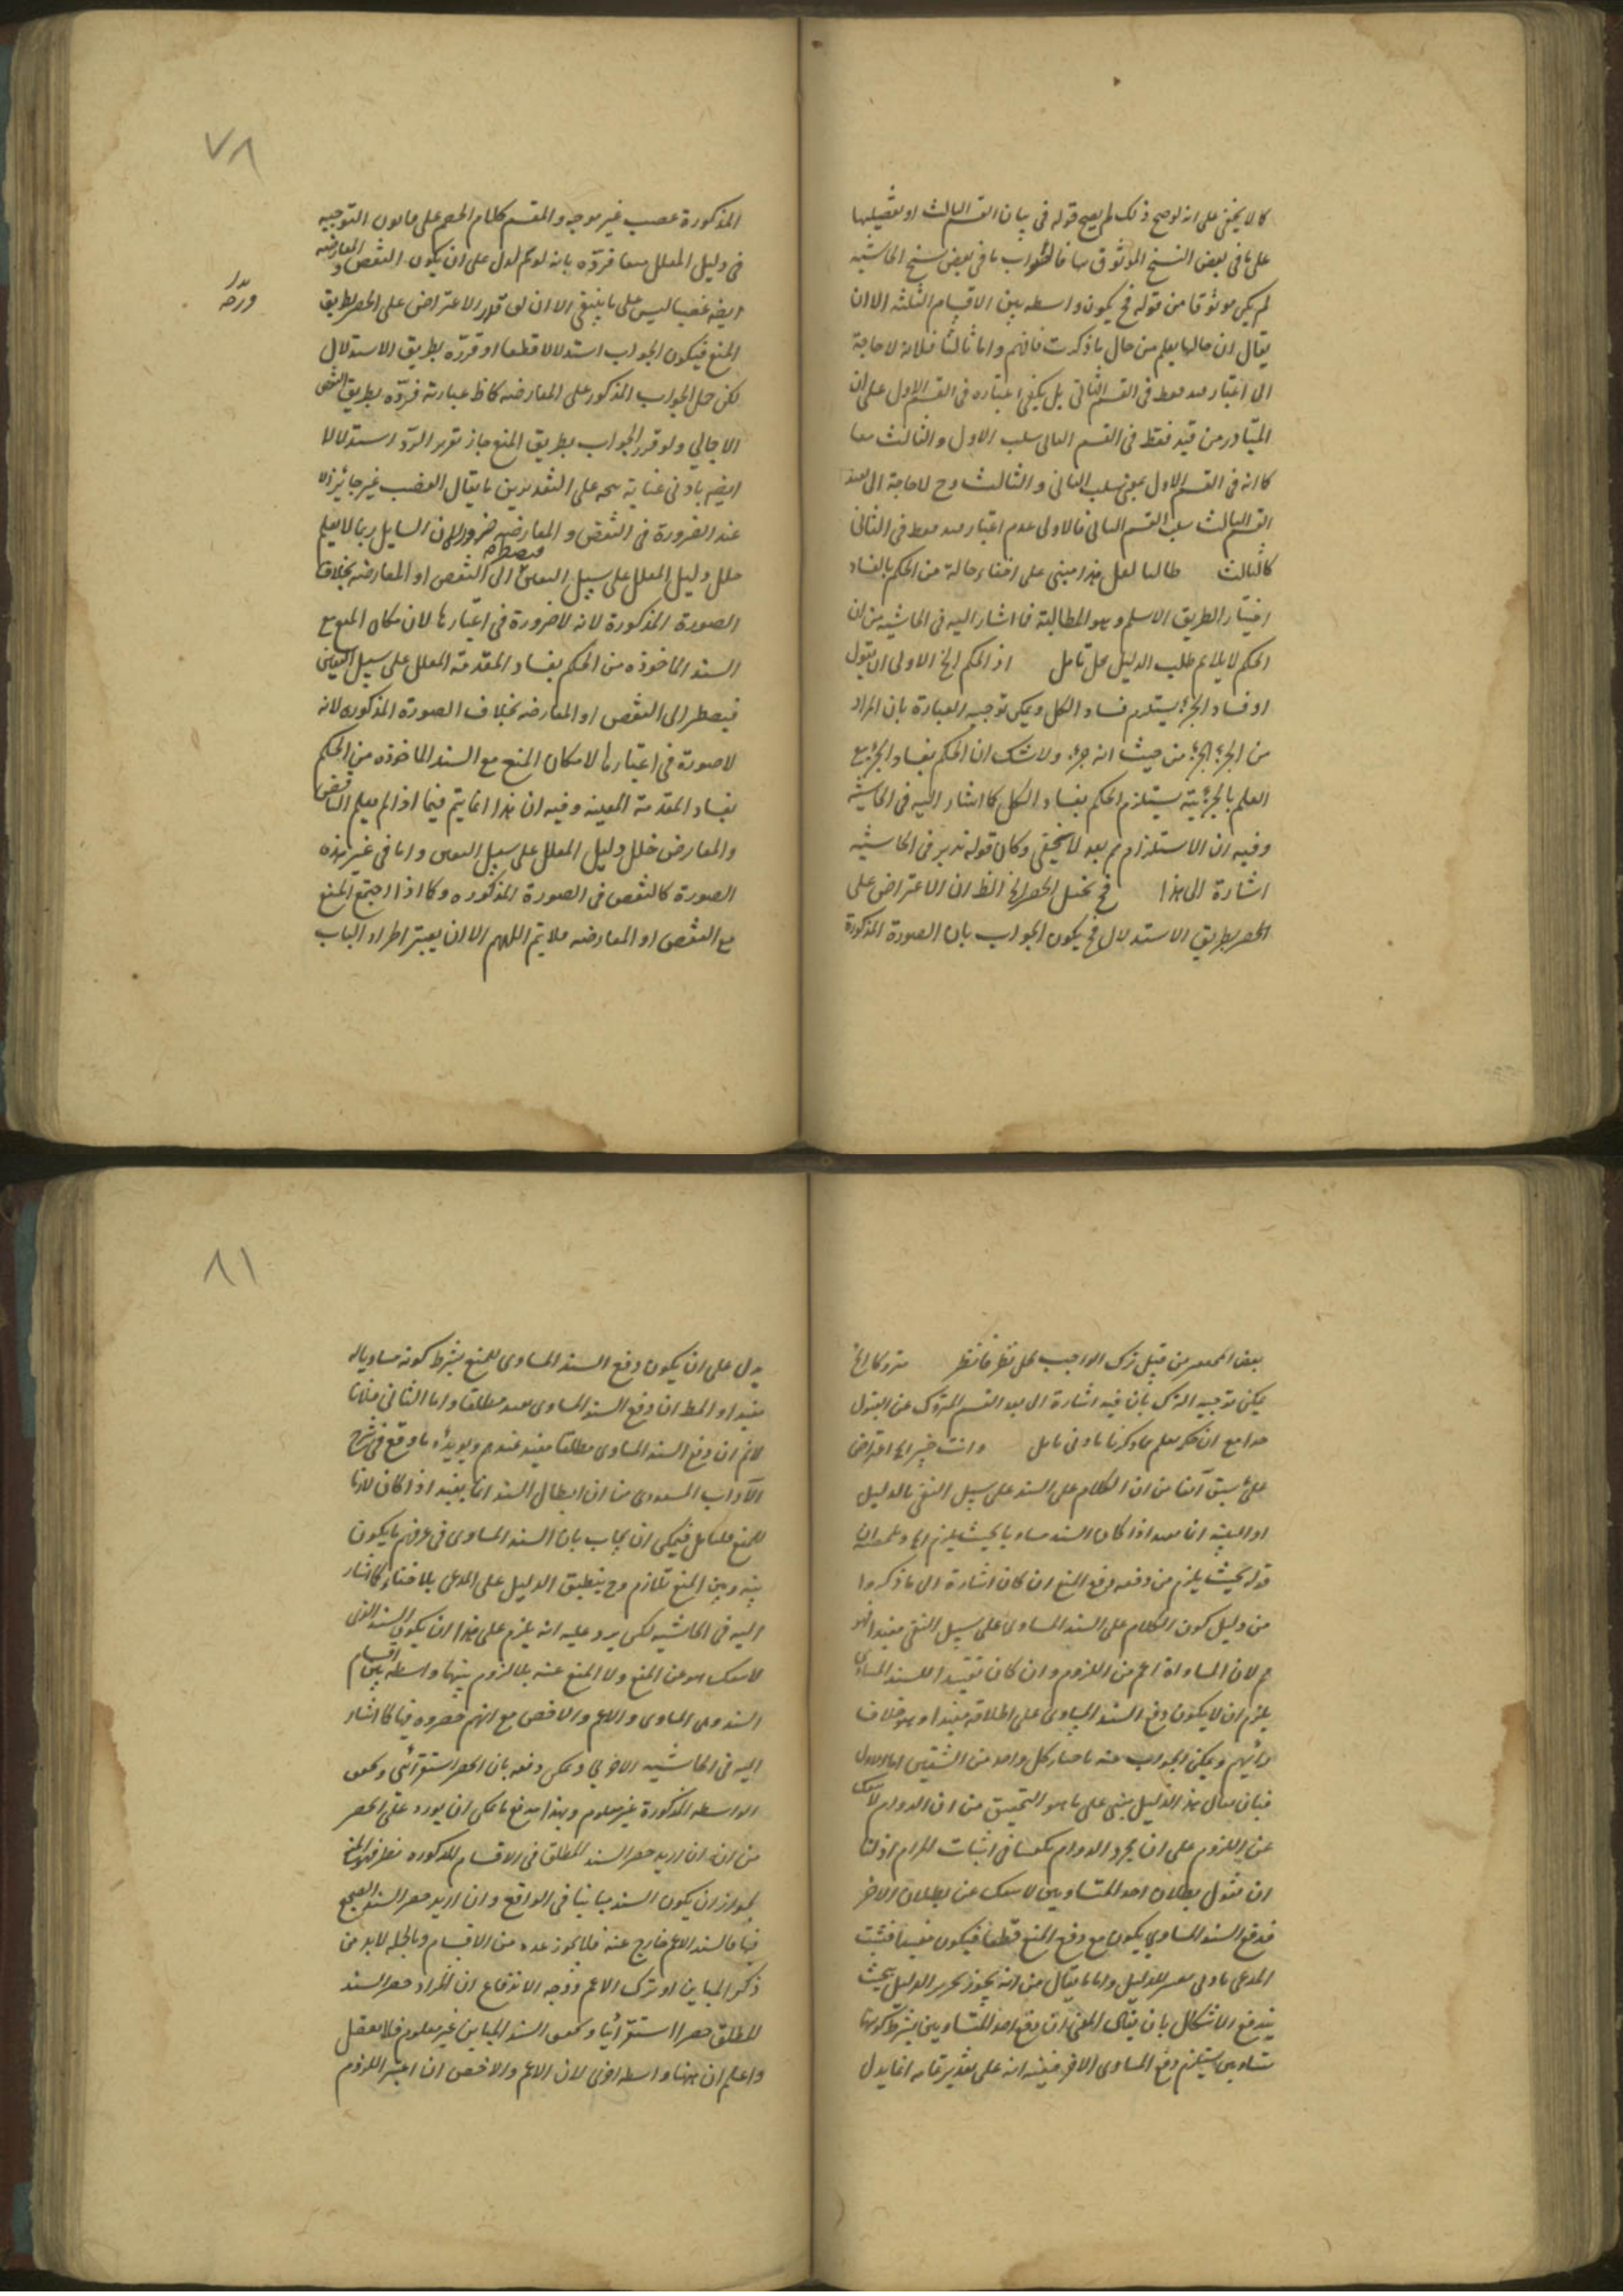 كما لا يخفى على انه لو صح ذلك لم يصح قوله فى بيان القسم الثالث او بفصلها
على ما فى بعض النسخ الموثوق بها فالصواب ما فى بعض نسخ الحاشية
لم يكن موثوقا من قوله فح يكون واسطه بين الاقسام الثلثه الا ان
يقال ان حالها يعلم من حال ما ذكرت فافهم واما ثالثا فلانه لا حاجة
الى اعتبار فقط فى القسم الثانى بل يكفى اعتباره فى القسم الاول على ان
المتبادر من قيد فقط فى القسم الثانى سلب الاول والثالث معا
كما انه فى القسم الاول بمعنى سلب الثانى والثالث وح لا حاجة الى
القسم الثالث سلب القسم الثانى فالاولى عدم اعتبار قيد فقط فى الثانى
كالثالث طالبا لعل هذا مبنى على اخفاء حالة من الحكم بالفساد
اختيار الطريق الاسلم وهو المطالبة فما اشار اليه فى الحاشيه من ان
الحكم لا يلايم طلب الدليل محل تامل اذ الحكم الخ الاولى ان يقول
او فساد الجزء يستلزم فساد الكل ويمكن توجيه العبارة بان المراد
من الجزء الجزء من حيث انه جزء ولا شك ان الحكم بفساد الجزء مع
العلم بالجزئية يستلزم الحكم بفساد الكل كما اشار اليه فى الحاشية
وفيه ان الاستلزام ثم بعد لا يخفى وكان قوله تدبر فى الحاشيه
اشارة الى هذا فح يختل الحصر الخ الظ ان الاعتراض على
الحصر بطريق الاستدلال فح يكون الجواب بان الصورة المذكورة
٧٨
المذكورة غصب غير موجه والمقسم كلام الخصم على قانون التوجيه
فى دليل المعلل منعا فردّه بانه لو تم لدل على ان يكون النقض والمعارضه
ايضه غصبا ليس على ما ينبغى الا ان لو قرر الاعتراض على الحصر بطريق
المنع فيكون الجواب استدلالا قطعا او قرّره بطريق الاستدلال
لكن حمل الجواب المذكور على المعارضه كما ظ عبارته فردّه بطريق النقض
الاجمالي ولو قرر الجواب بطريق المنع جاز تقرير الردّ استدلالا
ايضه بادنى عناية يتجه على التقديرين ما يقال الغصب غير جائز الا
عند الضرورة فى النقض والمعارضه ضرورة لان السايل ربما لا يعلم
خلل دليل المعلل على سبيل التعيين فيضطر الى النقض او المعارضه بخلاف
الصورة المذكورة لانه لا ضرورة فى اعتبارها لان مكان المنع مع
السند الماخوذه من الحكم بفساد المقدمة المعلل على سبيل التعيين
فيضطر الى النقض او المعارضه بخلاف الصورة المذكوره لانه
لا صورة فى اعتبارها لامكان المنع مع السند الماخوذه من الحكم
بفساد المقدمة المعينه وفيه ان هذا انما يتم فيما اذا لم يعلم الناقض
والمعارض خلل دليل المعلل على سبيل التعيين واما فى غير هذه
الصورة كالنقض فى الصورة المذكوره وكما اذا اجتمع المنع
مع النقض او المعارضه فلا يتم اللهم الا ان يعتبر اطراد الباب
من قبيل ترك الواجب محل نظر فانظر متروكا الخ
يمكن توجيه الترك بان فيه اشارة الى بعد القسم المتروك عن القبول
جدا مع ان حكمه يعلم مما ذكرنا بادنى تامل وانت خبير الخ اعتراض
على ما سبق آنفا من ان الكلام على السند على سبيل النفى بالدليل
او البينه انما يفيد اذا كان السند مساويا بحيث يلزم الخ ان
قوله بحيث يلزم من دفعه دفع المنع ان كان اشارة الى ما ذكروا
من دليل كون الكلام على السند المساوى على سبيل النفى مفيدا فهو
م لان المساواة اعم من اللزوم وان كان تقييدا للسند المساوى
يلزم ان لا يكون دفع السند المساوى على اطلاقه مفيدا وهو خلاف
رأيهم ويمكن الجواب عنه باختيار كل واحد من الشقين اما الاول
فبان يقال هذا الدليل مبنى على ما هو التحقيق من ان الدوام لا ينفك
عن اللزوم على ان مجرد الدوام يكفينا فى اثبات المرام اذ لنا
ان نقول بطلان احد المتساويين لا ينفك عن بطلان الاخر
فدفع السند المساوى يكون مع دفع المنع قطعا فيكون مفيدا فثبت
المدعى بادنى تغيير الدليل واما ما يقال من انه يجوز تحرير الدليل بحيث
يندفع الاشكال بان يقال المعنى ان دفع احد المتساويين بشرط كونهما
متساويين يستلزم دفع المساوى الاخر ففيه انه على تقدير تمامه انما يدل
٨١
يدل على ان يكون دفع السند المساوى للمنع بشرط كونه مساويا له
مفيدا والمط ان دفع السند المساوى مفيد مطلقا واما الثانى فلانا
لانم ان دفع السند المساوى مطلقا مفيد عندهم ويؤيده ما وقع فى شرح
الآداب المسعودى من ان ابطال السند انما يفيد اذا كان لازما
للمنع فليتامل فيمكن ان يجاب بان السند المساوى فى عرفهم ما يكون
بينه وبين المنع تلازم وح ينطبق الدليل على المدعى بلا خفاء كما اشار
اليه فى الحاشيه لكن يرد عليه انه يلزم على هذا ان يكون السند الذى
لا ينفك هو عن المنع ولا المنع عنه بلا لزوم بينهما واسطه بين اقسام
السند وهى المساوى والاعم والاخص مع انهم حصروه فيها كما اشار
اليه فى الحاشيه الاخرى ويمكن دفعه بان الحصر استقرائى وتحقق
الواسطه المذكورة غير معلوم وبهذا يندفع ما يمكن ان يورد على الحصر
من انه ان اريد حصر السند المطلق فى الاقسام المذكوره
لجواز ان يكون السند مباينا فى الواقع وان اريد حصر السند الصحيح
فيها فالسند الاعم خارج عنه فلا يجوز عده من الاقسام وبالجمله لابد من
ذكر المباين او ترك الاعم ووجه الاندفاع ان المراد حصر السند
المطلق حصرا استقرائيا وتحقق السند المباين غير معلوم فلا تغفل
واعلم ان ههنا واسطه اخرى لان الاعم والاخص ان اعتبر اللزوم